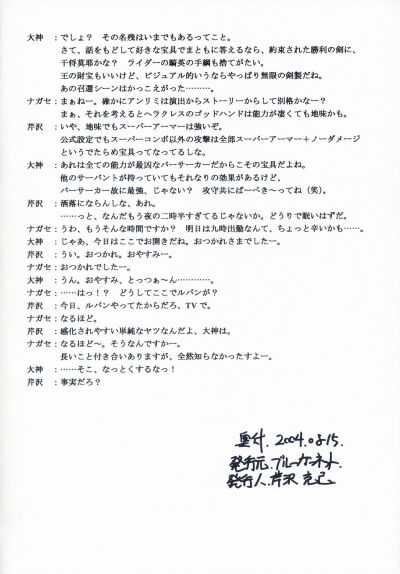 大神　：でしょ？　その名残はいまでもあるってこと。
さて、話をもどして好きな宝具でまともに答えるなら、約束された勝利の剣に、
干将莫耶かな？　ライダーの騎英の手綱も捨てがたい。
王の財宝もいいけど、ビジュアル的いうならやっぱり無限の剣製だね。
あの召還シーンはかっこえがった………。
ナガセ：まぁねー。確かにアンリミは演出からストーリーからして別格かなー？
まぁ、それを考えるとヘラクレスのゴッドハンドは能力が凄くても地味かも。
芹沢　：いや、地味でもスーパーアーマーは強いぞ。
公式設定でもスーパーコンボ以外の攻撃は全部スーパーアーマー＋ノーダメージ
というでたらめ宝具ってなってるしな。
大神　：あれは全ての能力が最凶なバーサーカーだからこその宝具だよね。
他のサーヴァントが持っていてもそれなりの効果があるけど、
バーサーカー故に最強、じゃない？　攻守共にばーぺき～ってね（笑）。
芹沢　：洒落にならんしな、あれ。
……っと、なんだもう夜の二時半すぎてるじゃないか。どうりで眠いはずだ。
ナガセ：うわ、もうそんな時間ですか？　明日は九時出勤なんて、ちょっと辛いかも……。
大神　：じゃあ、今日はここでお開きだね。おつかれさまでしたー。
芹沢　：うい。おつかれ。おやすみー。
ナガセ：おつかれでしたー。
大神　：うん。おやすみ、とっつぁ～ん…………。
ナガセ：……はっ！？　どうしてここでルパンが？
芹沢　：今日、ルパンやってたからだろ、TVで。
ナガセ：なるほど。
芹沢　：感化されやすい単純なヤツなんだよ、大神は。
ナガセ：なるほど～。そうなんですかー。
長いこと付き合いありますが、全然知らなかったすよー。
大神　：……そこ、なっとくするなっ！
芹沢　：事実だろ？
2004.08.15.
発行元.ブルーゲーネット.
発行人.芹沢 克己